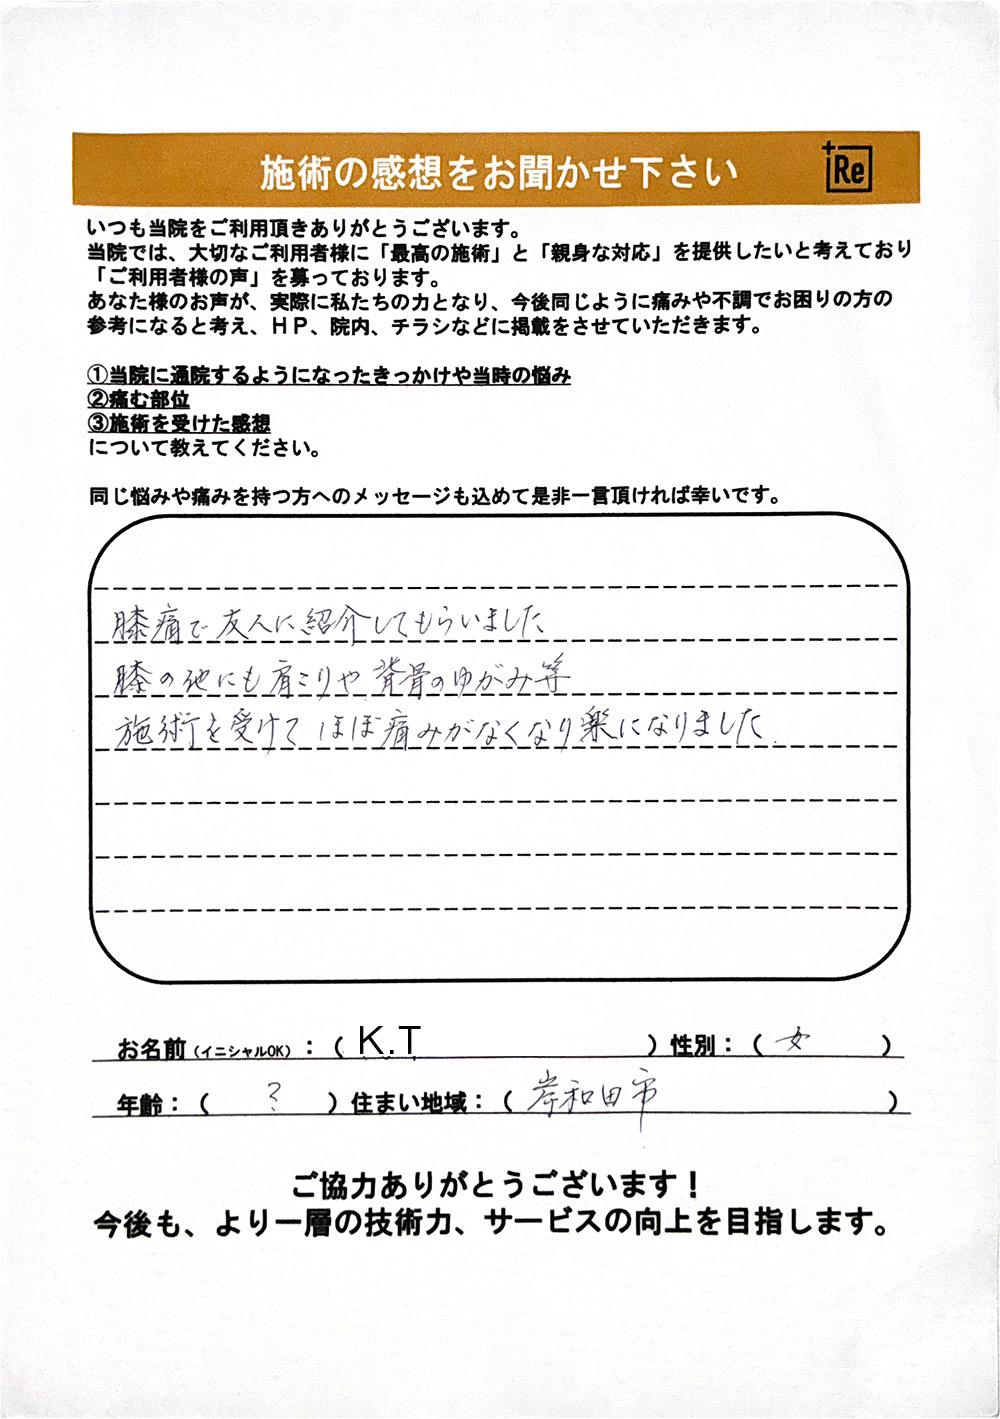 施術の感想をお聞かせ下さい
+Re
いつも当院をご利用頂きありがとうございます。
当院では、大切なご利用者様に「最高の施術」と「親身な対応」を提供したいと考えており
「ご利用者様の声」を募っております。
あなた様のお声が、実際に私たちの力となり、今後同じように痛みや不調でお困りの方の
参考になると考え、ＨＰ、院内、チラシなどに掲載をさせていただきます。
①当院に通院するようになったきっかけや当時の悩み
②痛む部位
③施術を受けた感想
について教えてください。
同じ悩みや痛みを持つ方へのメッセージも込めて是非一言頂ければ幸いです。
膝痛で友人に紹介してもらいました
膝の他にも肩こりや背骨のゆがみ等
施術を受けてほぼ痛みがなくなり楽になりました
お名前（イニシャルOK）：（ K.T ）性別：（ 女 ）
年齢：（ ? ）住まい地域：（ 岸和田市 ）
ご協力ありがとうございます！
今後も、より一層の技術力、サービスの向上を目指します。